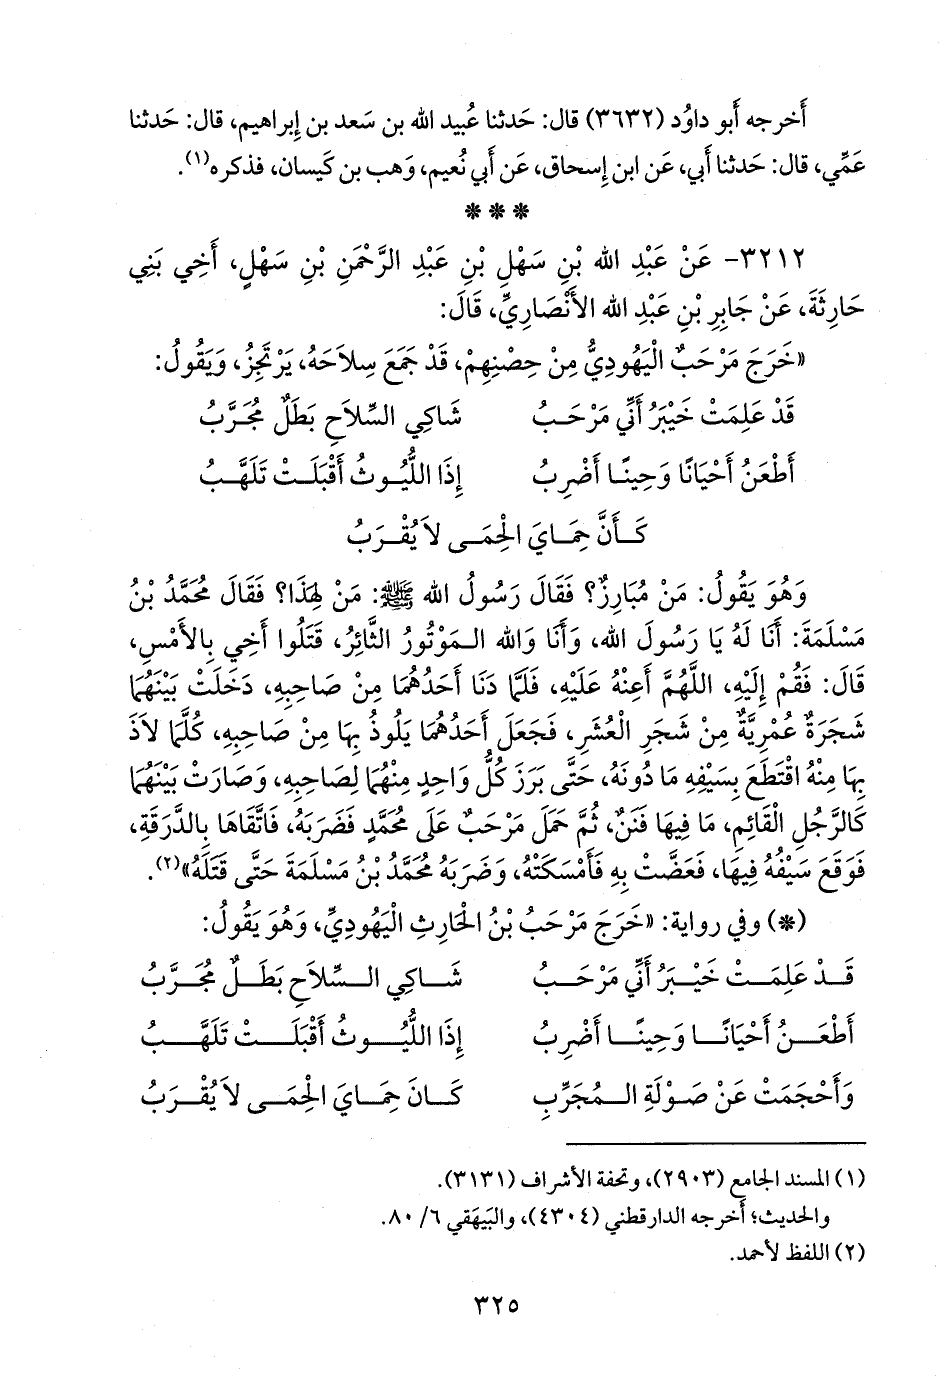 أَخرجه أَبو داوُد (٣٦٣٢) قال: حَدثنا عُبيد الله بن سَعد بن إِبراهيم، قال: حَدثنا
عَمِّي، قال: حَدثنا أَبي، عَن ابن إِسحاق، عَن أَبي نُعيم، وَهب بن كَيسان، فذكره(١).
* * *
٣٢١٢- عَنْ عَبْدِ الله بْنِ سَهْلِ بْنِ عَبْدِ الرَّحْمَنِ بْنِ سَهْلٍ، أَخِي بَنِي
حَارِثَةَ، عَنْ جَابِرِ بْنِ عَبْدِ الله الأَنْصَارِيِّ، قَالَ:
«خَرَجَ مَرْحَبٌ الْيَهُودِيُّ مِنْ حِصْنِهِمْ، قَدْ جَمَعَ سِلاَحَهُ، يَرْتَجِزُ، وَيَقُولُ:
قَدْ عَلِمَتْ خَيْبَرُ أَنِّي مَرْحَبُ شَاكِي السِّلاَحِ بَطَلٌ مُجَرَّبُ
أَطْعَنُ أَحْيَانًا وَحِينًا أَضْرِبُ إِذَا اللُّيُوثُ أَقْبَلَتْ تَلَهَّبُ
كَأَنَّ حِمَايَ الْحِمَى لاَ يُقْرَبُ
وَهُوَ يَقُولُ: مَنْ مُبَارِزٌ؟ فَقَالَ رَسُولُ الله ﷺ: مَنْ لِهَذَا؟ فَقَالَ مُحَمَّدُ بْنُ
مَسْلَمَةَ: أَنَا لَهُ يَا رَسُولَ الله، وَأَنَا وَالله الْمَوْتُورُ الثَّائِرُ، قَتَلُوا أَخِي بِالأَمْسِ،
قَالَ: فَقُمْ إِلَيْهِ، اللَّهُمَّ أَعِنْهُ عَلَيْهِ، فَلَمَّا دَنَا أَحَدُهُمَا مِنْ صَاحِبِهِ، دَخَلَتْ بَيْنَهُمَا
شَجَرَةٌ عُمْرِيَّةٌ مِنْ شَجَرِ الْعُشَرِ، فَجَعَلَ أَحَدُهُمَا يَلُوذُ بِهَا مِنْ صَاحِبِهِ، كُلَّمَا لاَذَ
بِهَا مِنْهُ اقْتَطَعَ بِسَيْفِهِ مَا دُونَهُ، حَتَّى بَرَزَ كُلُّ وَاحِدٍ مِنْهُمَا لِصَاحِبِهِ، وَصَارَتْ بَيْنَهُمَا
كَالرَّجُلِ الْقَائِمِ، مَا فِيهَا فَنَنٌ، ثُمَّ حَمَلَ مَرْحَبٌ عَلَى مُحَمَّدٍ فَضَرَبَهُ، فَاتَّقَاهَا بِالدَّرَقَةِ،
فَوَقَعَ سَيْفُهُ فِيهَا، فَعَضَّتْ بِهِ فَأَمْسَكَتْهُ، وَضَرَبَهُ مُحَمَّدُ بْنُ مَسْلَمَةَ حَتَّى قَتَلَهُ»(٢).
(*) وفي رواية: «خَرَجَ مَرْحَبُ بْنُ الْحَارِثِ الْيَهُودِيِّ، وَهُوَ يَقُولُ:
قَدْ عَلِمَتْ خَيْبَرُ أَنِّي مَرْحَبُ شَاكِي السِّلاَحِ بَطَلٌ مُجَرَّبُ
أَطْعَنُ أَحْيَانًا وَحِينًا أَضْرِبُ إِذَا اللُّيُوثُ أَقْبَلَتْ تَلَهَّبُ
وَأَحْجَمَتْ عَنْ صَوْلَةِ الْمُجَرِّبِ كَانَ حِمَايَ الْحِمَى لاَ يُقْرَبُ
(١) المسند الجامع (٢٩٠٣)، وتحفة الأشراف (٣١٣١).
والحديث؛ أخرجه الدارقطني (٤٣٠٤)، والبَيهَقي ٦/ ٨٠.
(٢) اللفظ لأحمد.
٣٢٥